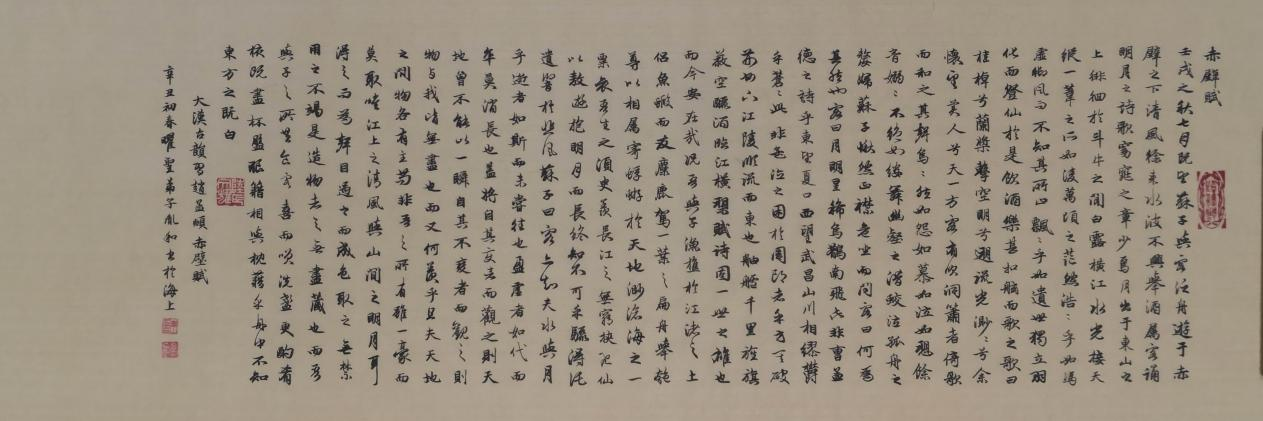 赤壁賦
壬戌之秋七月既望蘇子與客泛舟遊于赤
壁之下清風徐來水波不興舉酒屬客誦
明月之詩歌窈窕之章少焉月出于東山之
上徘徊於斗牛之間白露橫江水光接天
縱一葦之所如凌萬頃之茫然浩〻乎如馮
虛御風而不知其所止飄〻乎如遺世獨立羽
化而登仙於是飲酒樂甚扣舷而歌之歌曰
桂棹兮蘭槳擊空明兮遡流光渺〻兮余
懷望美人兮天一方客有吹洞簫者倚歌
而和之其聲烏〻然如怨如慕如泣如愬餘
音嫋〻不絕如縷舞幽壑之潛蛟泣孤舟之
嫠婦蘇子愀然正襟危坐而問客曰何為
其然也客曰月明星稀烏鵲南飛此非曹孟
德之詩乎東望夏口西望武昌山川相繆鬱
乎蒼〻此非孟德之困於周郎者乎方其破
荊州下江陵順流而東也舳艫千里旌旗
蔽空釃酒臨江橫槊賦詩固一世之雄也
而今安在哉況吾與子漁樵於江渚之上
侶魚蝦而友麋鹿駕一葉之扁舟舉匏
尊以相屬寄蜉蝣於天地渺滄海之一
粟哀吾生之須臾羨長江之無窮挾飛仙
以遨遊抱明月而長終知不可乎驟得託
遺響於悲風蘇子曰客亦知夫水與月
乎逝者如斯而未嘗往也盈虛者如代而
卒莫消長也蓋將自其變者而觀之則天
地曾不能以一瞬自其不變者而觀之則
物與我皆無盡也而又何羨乎且夫天地
之間物各有主苟非吾之所有雖一毫而
莫取唯江上之清風與山間之明月耳
得之而為聲目遇之而成色取之無禁
用之不竭是造物者之無盡藏也而吾
與子之所共食客喜而笑洗盞更酌肴
核既盡杯盤狼籍相與枕藉乎舟中不知
東方之既白
大漢古韻習趙孟頫赤壁賦
辛丑初春曜聖弟子胤和書於海上